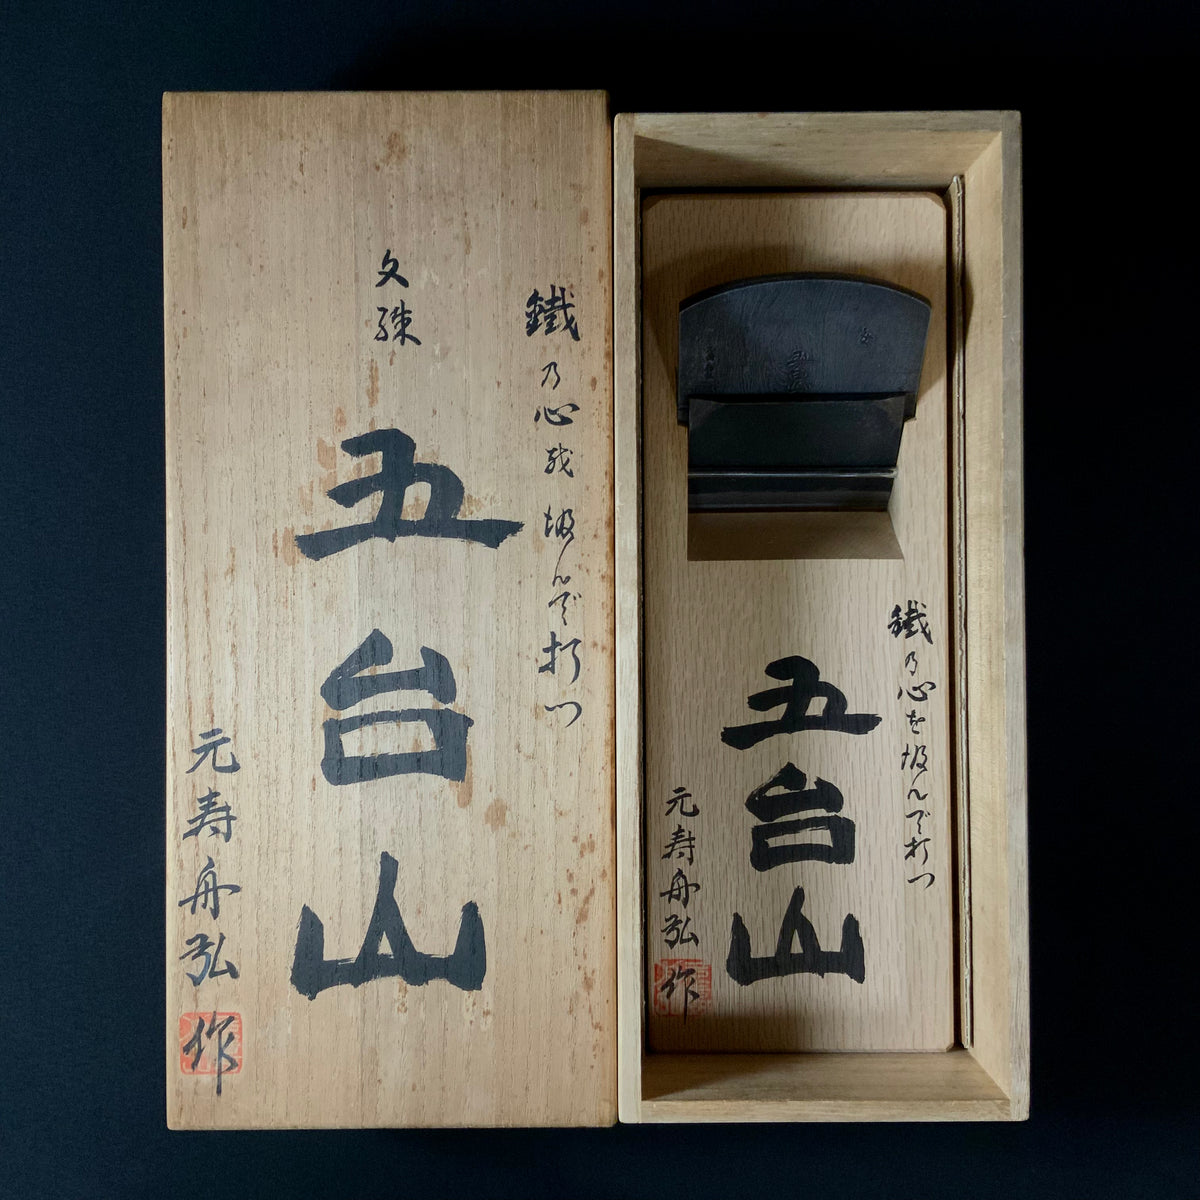 鐵乃心戎掴んで打つ
文殊
五台山
元寿舟弘作
鐵乃心を掴んで打つ
五台山
元寿舟弘作